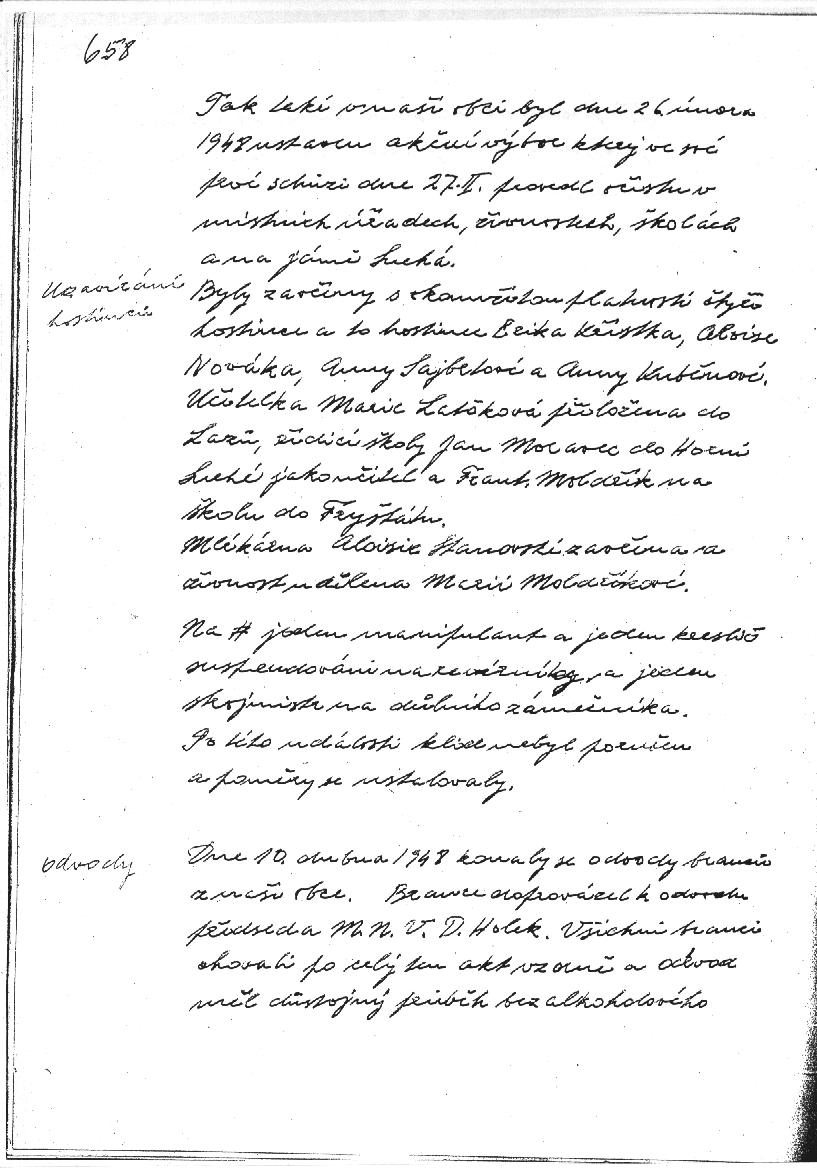 658
Tak také v naší obci byl dne 26 února
1948 ustaven akční výbor který ve své
prvé schůzi dne 27.II. provedl očistu v
místních úřadech, živnostech, školách
a na jámě Suchá.
Uzavírání
hostinců
Byly zavřeny s okamžitou platností čtyři
hostince a to hostince Erika Křístka, Aloise
Nováka, Anny Sajbotové a Anny Kuběnové.
Učitelka Marie Latoková přeložena do
Lazů, řídící školy Jan Moravec do Horní
Suché jako učitel a Frant. Moldřík na
školu do Fryštátu.
Mlékárna Aloisie Stanovski zavřena a
živnost udělena Marii Moldříkové.
Na # jeden manipulant a jeden kreslič
suspendováni na revírníky, a jeden
strojmistr na důlního zámečníka.
Po této události klid nebyl porušen
a poměry se ustalovaly.
Odvody
Dne 10. dubna 1948 konaly se odvody branců
z naší obce. Brance doprovázel k odvodu
předseda M.N.V. D. Holek. Všichni branci
chovali po celý ten akt vzorně a odvod
měl důstojný průběh bez alkoholového